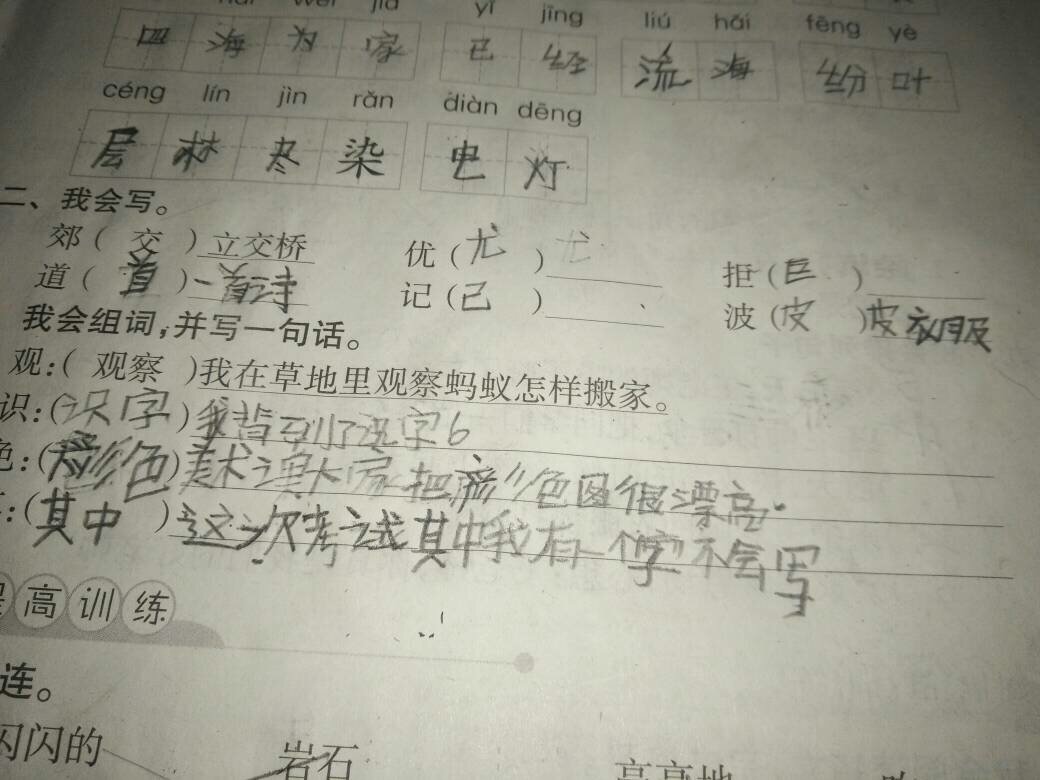 wéi jiā yǐ jīng liú hǎi fēng yè
四海为家 已经 流海 纷叶
céng lín jìn rǎn diàn dēng
层林尽染 电灯
二、我会写。
郊( 交 )立交桥 优(尤 )尤 拒(巨 )
道( 首 )一首诗 记(己 ) 波(皮 )皮衣服
我会组词,并写一句话。
观:( 观察 )我在草地里观察蚂蚁怎样搬家。
识:(识字)我 识字
色:(彩色)美术课大家把彩色图很漂亮.
:(其中 )这次考试其中我有一个字不会写
高训练
连。
闪闪的 岩石 高高地